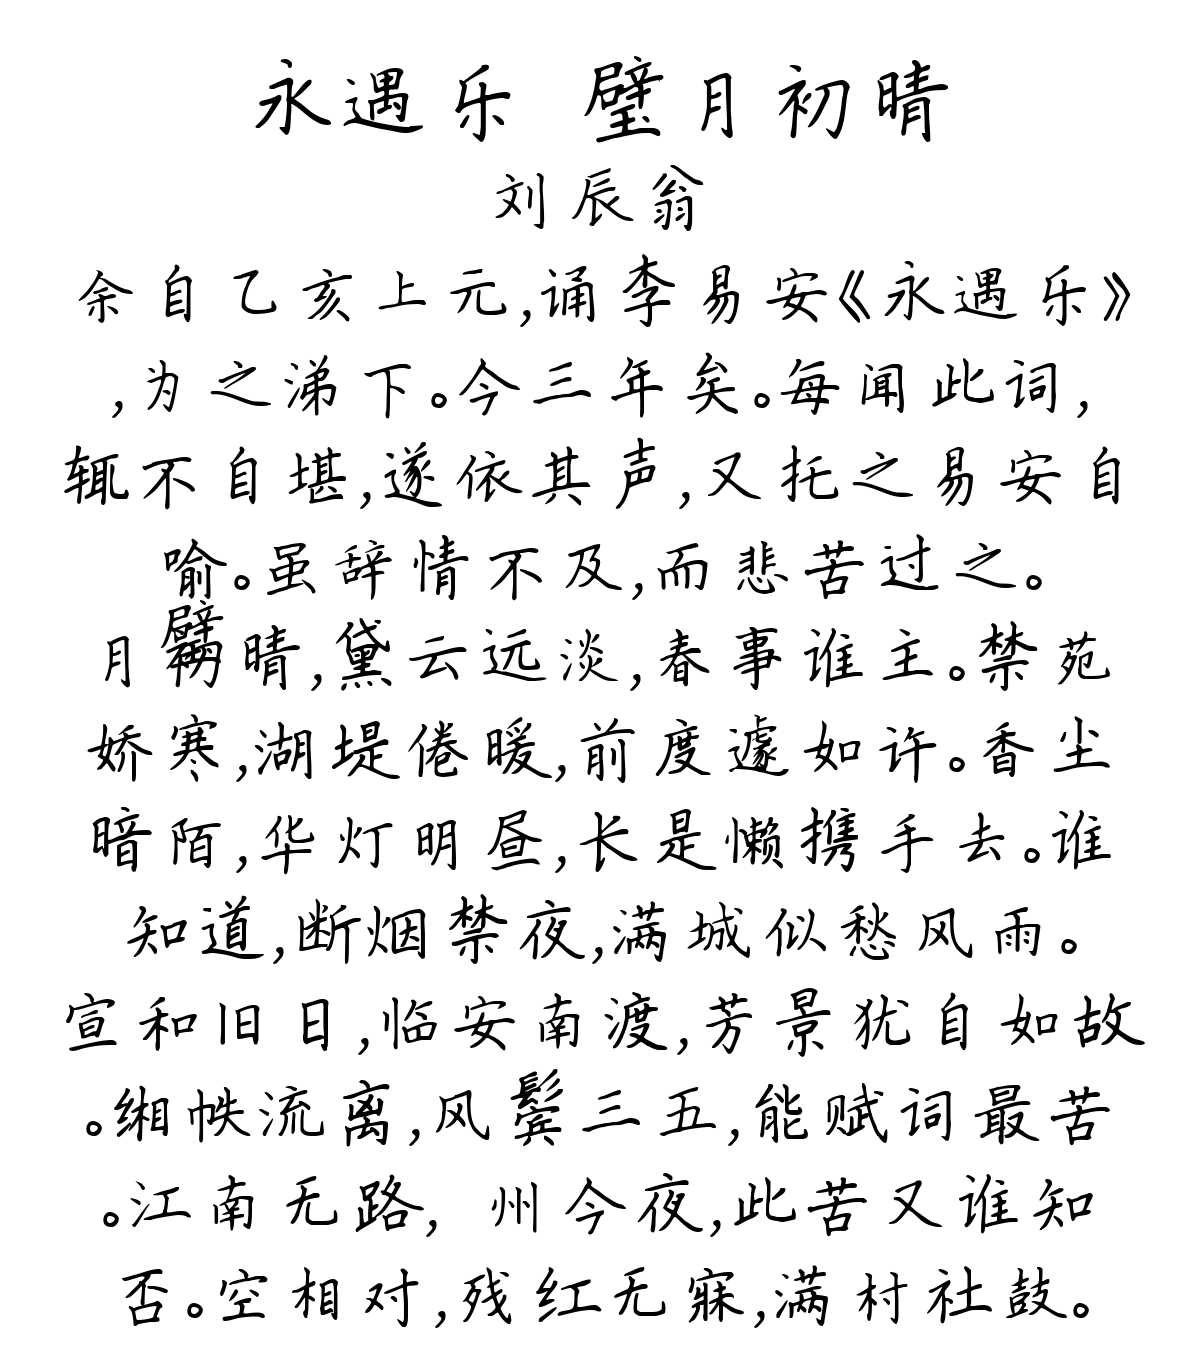 永遇乐 璧月初晴
刘辰翁
余自乙亥上元,诵李易安《永遇乐》
,为之涕下。今三年矣。每闻此词,
辄不自堪,遂依其声,又托之易安自
喻。虽辞情不及,而悲苦过之。
璧月初晴,黛云远淡,春事谁主。禁苑
娇寒,湖堤倦暖,前度遽如许。香尘
暗陌,华灯明昼,长是懒携手去。谁
知道,断烟禁夜,满城似愁风雨。
宣和旧日,临安南渡,芳景犹自如故
。缃帙流离,风鬓三五,能赋词最苦
。江南无路, 州今夜,此苦又谁知
否。空相对,残红无寐,满村社鼓。